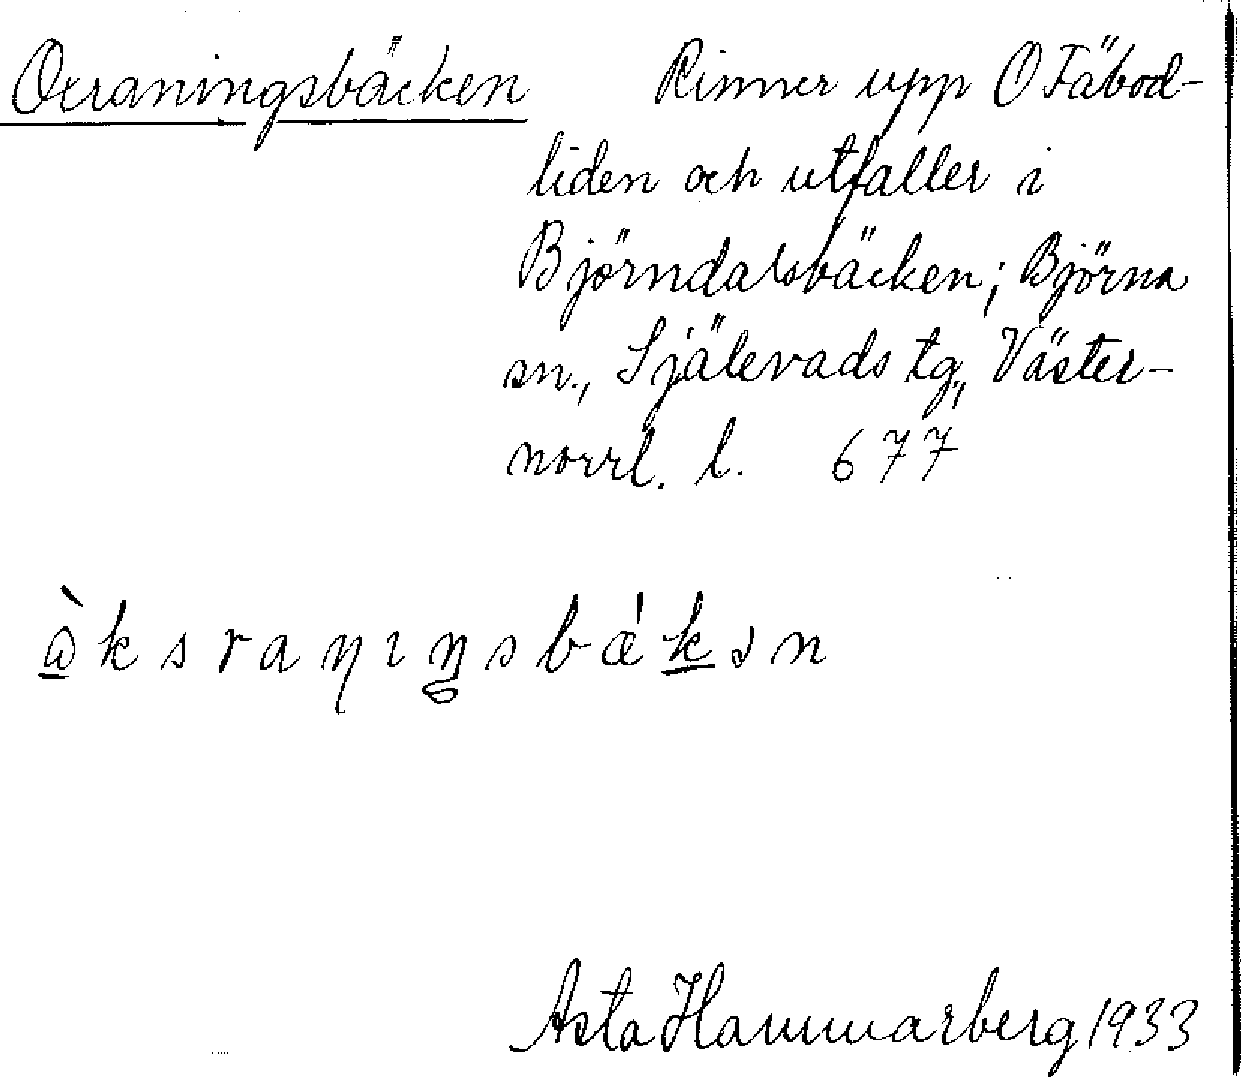 Oxraningsbäcken Rinner upp O Fäbod-
liden och utfaller i
Björndalsbäcken; Björna
sn., Själevads tg, Väster-
norrl. l. 677
Asta Hammarberg 1933